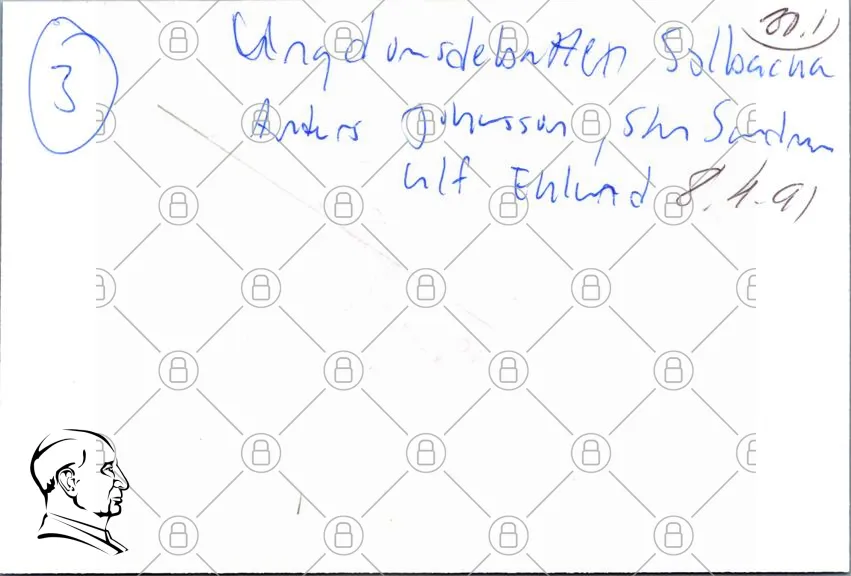 30.1
3
Ungdomsdebatten Solbacka
Anders Johansson, Sten Sandm
Ulf Ehlund 8.4.91